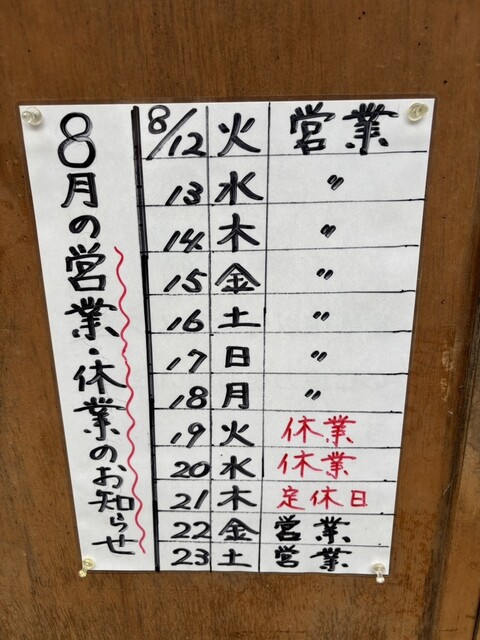 8月の営業・休業のお知らせ
8/12 火 営業
13 水 〃
14 木 〃
15 金 〃
16 土 〃
17 日 〃
18 月 〃
19 火 休業
20 水 休業
21 木 定休日
22 金 営業
23 土 営業